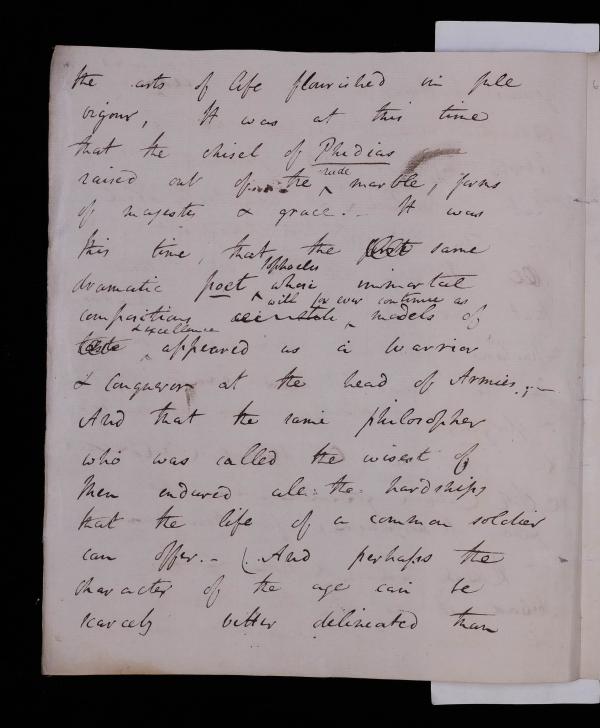 the arts of life flourished in full
vigour, It was at this time
that the chisel of Phidias
raised out of the rude marble, forms
of majesty & grace. - It was
this time, that the same
dramatic poet Sophocles whose immortal
compositions will for ever continue as models of
taste & excellence appeared as a warrior
& Conqueror at the head of Armies; -
And that the same philosopher
who was called the wisest of
Men endured all the hardships
that the life of a common soldier
can offer. - (And perhaps the
character of the age can be
scarcely better delineated than